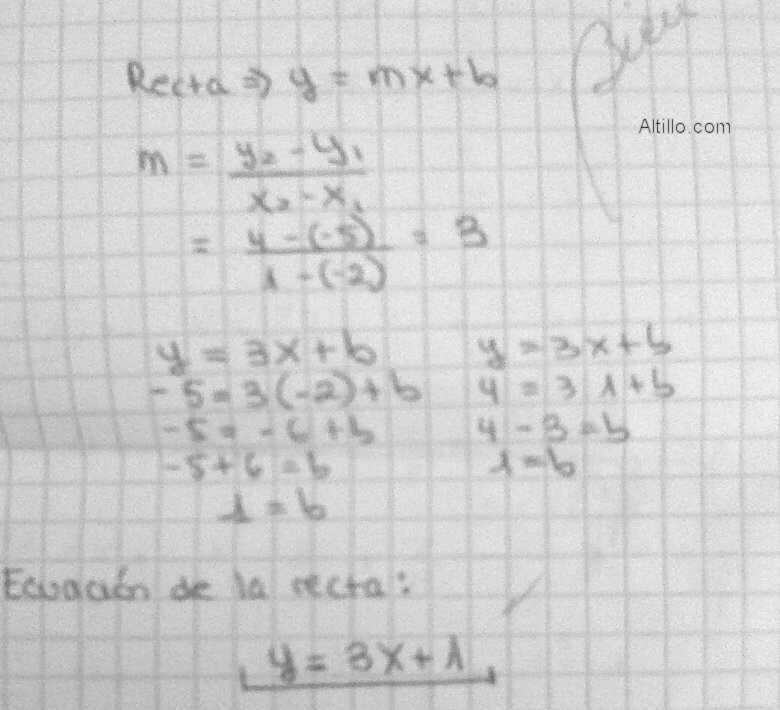 Bien
Recta ⇒ y = mx + b
Altillo.com
m = y₂ - y₁ / x₂ - x₁
= 4 - (-5) / 1 - (-2) = 3
y = 3x + b
-5 = 3(-2) + b
-5 = -6 + b
-5 + 6 = b
1 = b
y = 3x + b
4 = 3 1 + b
4 - 3 = b
1 = b
Ecuación de la recta:
y = 3x + 1